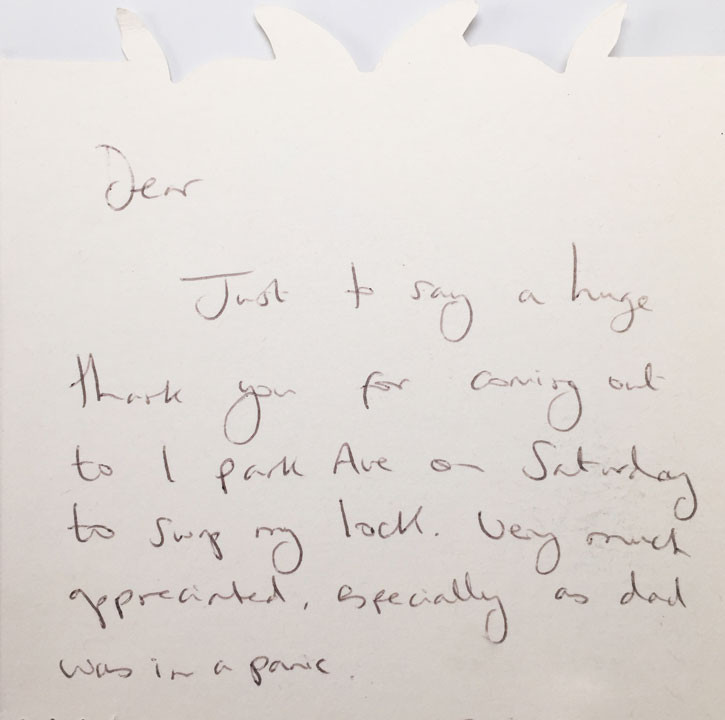 Dear
Just to say a huge
thank you for coming out
to 1 park Ave on Saturday
to swap my lock. Very much
appreciated, especially as dad
was in a panic.